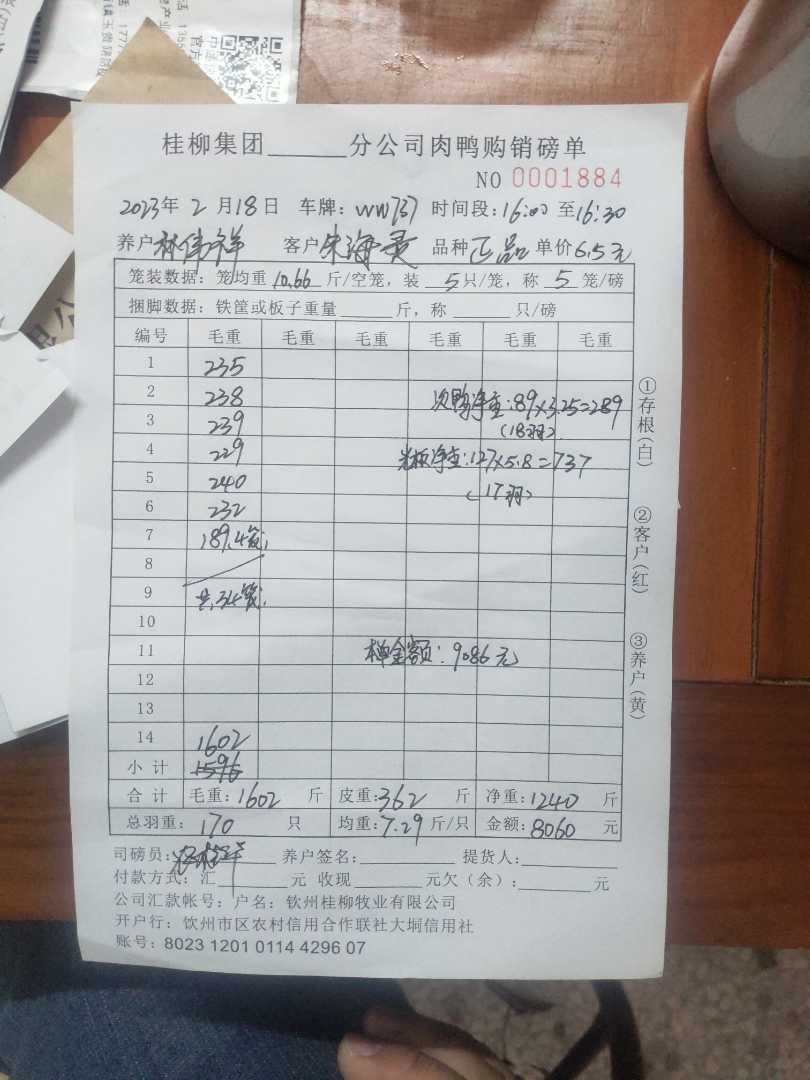 桂柳集团______分公司肉鸭购销磅单
NO 0001884
2023年 2 月 18 日 车牌: WW737 时间段: 16:00 至 16:30
养户 林伟祥 客户 朱海 品种 正品 单价 6.5 元
笼装数据: 笼均重 10.66 斤/空笼, 装 5 只/笼, 称 5 笼/磅
捆脚数据: 铁筐或板子重量______斤, 称______只/磅
编号 毛重 毛重 毛重 毛重 毛重 毛重
1 235
2 238 次鸭净重: 89×3.25=289
3 239 (18羽)
4 229 光板净重: 127×5.8=737
5 240 (17羽)
6 232
7 189. 4笼
8
9 共34笼
10
11 本单金额: 9086元
12
13
14 1602
小 计 1596
合 计 毛重: 1602 斤 皮重: 362 斤 净重: 1240 斤
总羽重: 170 只 均重: 7.29 斤/只 金额: 8060 元
司磅员: 养户签名:______ 提货人:______
付款方式: 汇______元 收现______元欠(余):______元
公司汇款帐号: 户名: 钦州桂柳牧业有限公司
开户行: 钦州市区农村信用合作联社大垌信用社
账号: 8023 1201 0114 4296 07
①存根(白)
②客户(红)
③养户(黄)